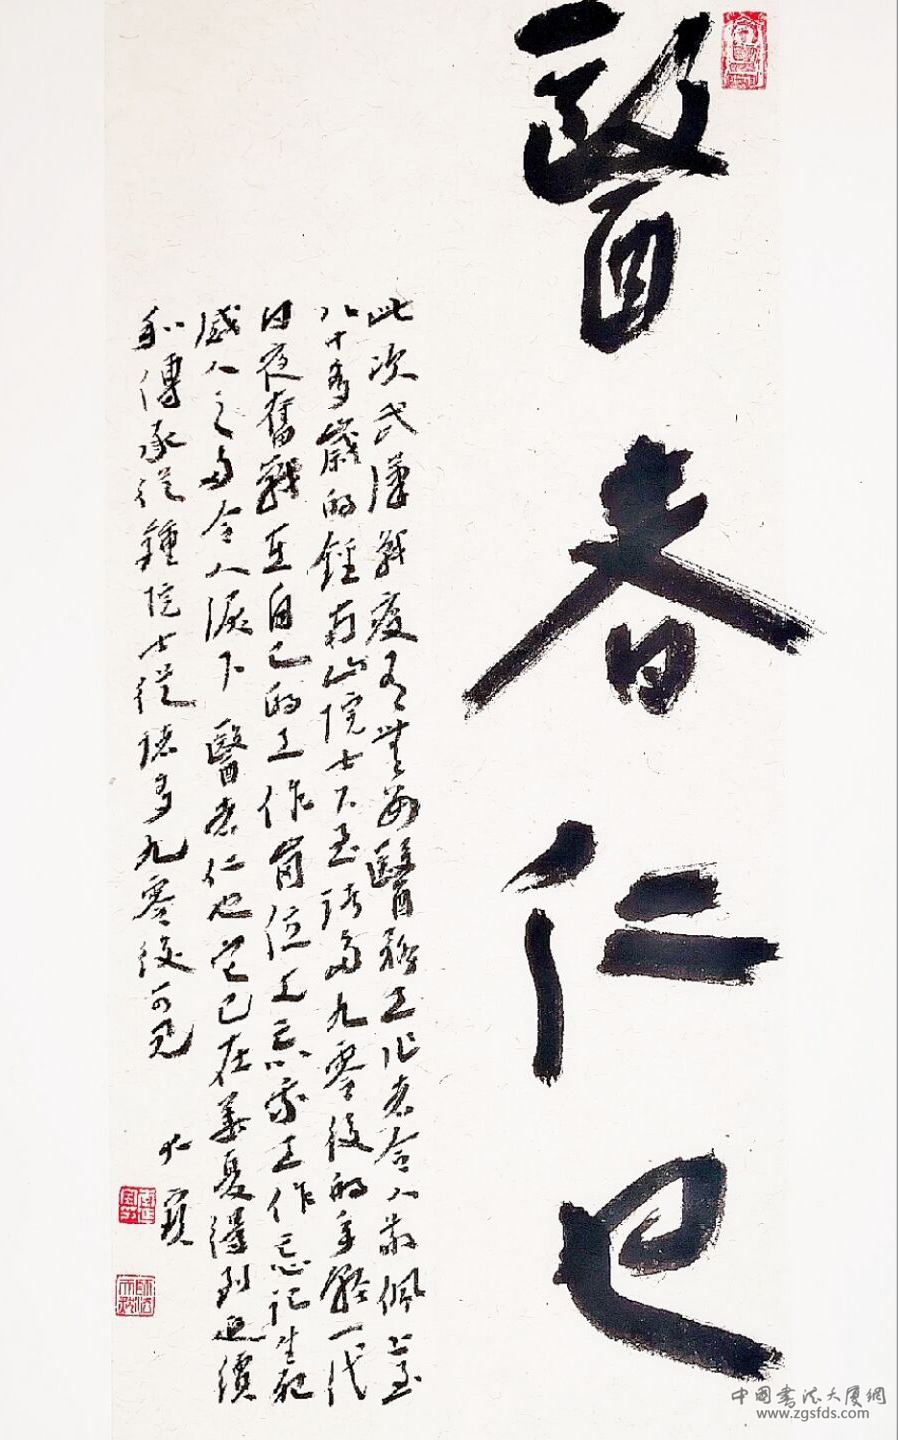 醫者仁也
此次武漢戰疫有無數醫務工作者令人敬佩上至
八十多歲的鍾南山院士下至諸多九零後的年輕一代
日夜奮戰在自己的工作崗位上忘我工作忘記生死
感人之多令人淚下醫者仁也它已在華夏得到延續
和傳承從鍾院士從諸多九零後可見
中国书法大厦網
www.zgsfds.com